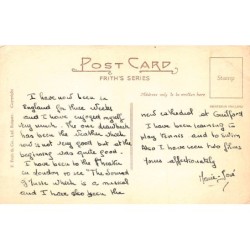 POST CARD
FRITH'S SERIES
Address only to be written here
Stamp
F. Frith & Co., Ltd. Reigate.
Copyright
I have now been in
England for three weeks
and I have enjoyed myself
very much. The one drawback
has been the weather which
now is not very good but at the
beginning was quite good.
I have been to the theatre
in London to see "The Sound
of Music" which is a musical
and I have also seen the
new cathedral at Guilford
I have been learning to
play tennis and to swim
Also I have seen two films
Yours affectionately
Marie-José